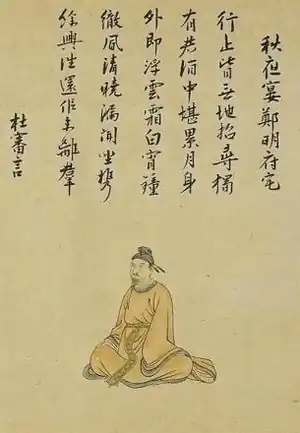 秋夜宴鄭明府宅
行止皆无地招尋獨
有君酒中堪累月身
外即浮雲霜白宵鐘
徹風清曉漏聞坐攜
餘興往還似未離羣
杜審言